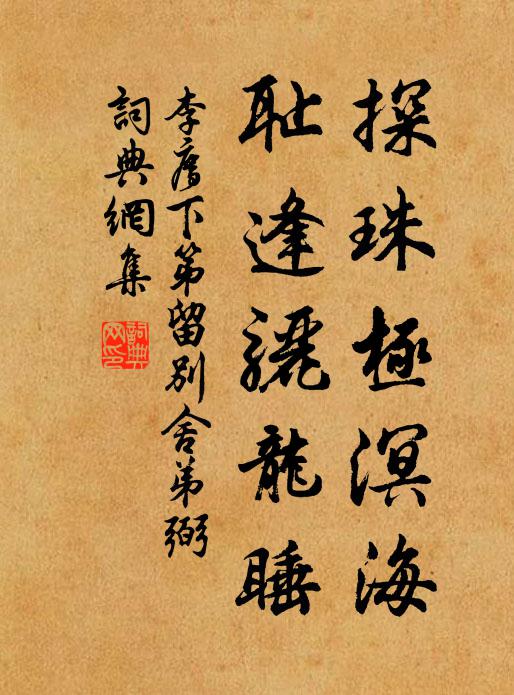 探珠極溟海
耻逢驪龍睡
李廌下第留別舍弟弼
詞典網集
詞典网印